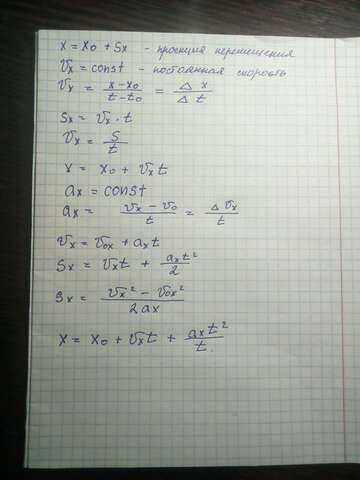 x = x₀ + Sx - проекция перемещения
𝑣x = const - постоянная скорость
𝑣x = (x-x₀)/(t-t₀) = Δx/Δt
Sx = 𝑣x · t
𝑣x = S/t
x = x₀ + 𝑣xt
ax = const
ax = (𝑣x - 𝑣₀)/t = Δ𝑣x/t
𝑣x = 𝑣₀x + axt
Sx = 𝑣xt + axt²/2
Sx = (𝑣x² - 𝑣₀x²)/2ax
x = x₀ + 𝑣xt + axt²/t